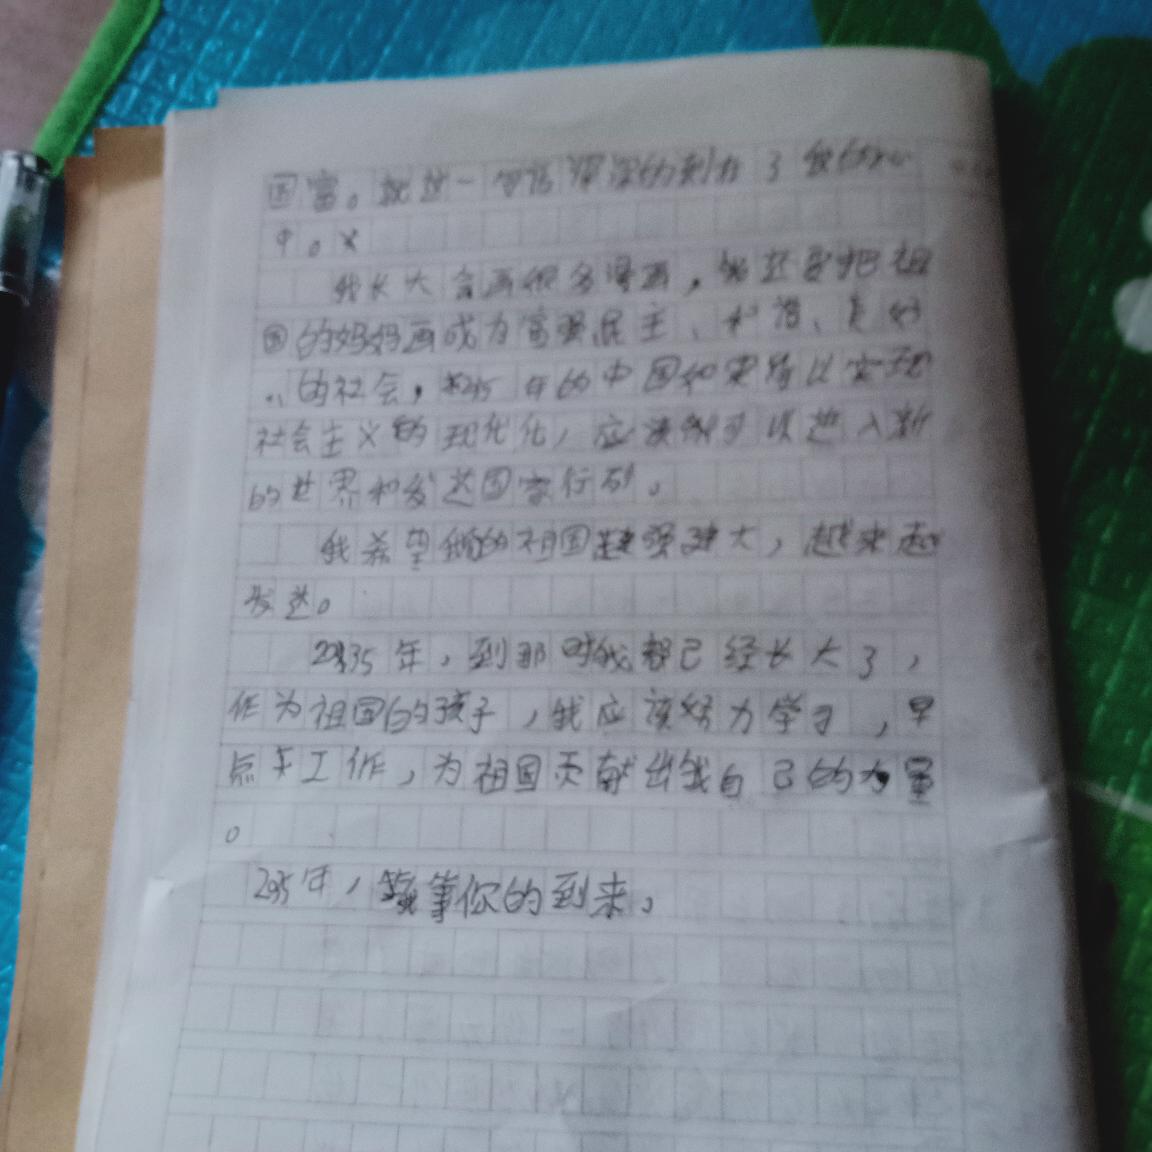 国富。就这一句话深深的刻在了我的心
中。
我长大会画很多漫画,我还要把祖
国的妈妈画成为富强民主、和谐、美好
的社会,2035年的中国和要得以实现
社会主义的现代化,应该做可以进入新
的世界和发达国家行列。
我希望我们的祖国越强建大,越来越
发达。
2035年,到那时我都已经长大了,
作为祖国的孩子,我应该好努力学习,早
点干工作,为祖国贡献出我自己的力量
。
2035年,我等你的到来。